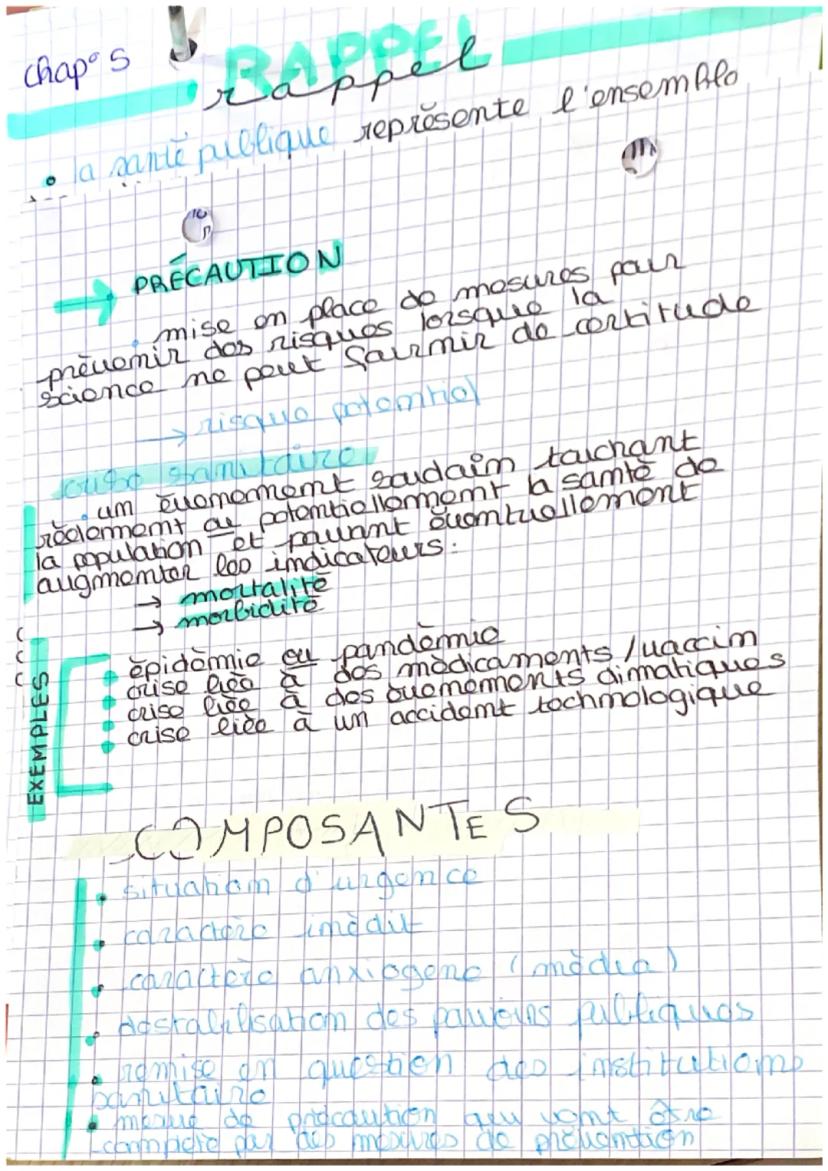 chap° 5
RAPPEL
rappel
• la santé publique représente l'ensemble
→ PRÉCAUTION
mise en place de mesures pour
prévenir des risques lorsque la
science ne peut fournir de certitude
→ risque potentiel
crise sanitaire
un évènement soudain touchant
réellement ou potentiellement la santé de
la population et pouvant éventuellement
augmenter les indicateurs :
→ mortalité
→ morbidité
EXEMPLES
• épidémie ou pandémie
• crise liée à des médicaments / vaccin
• crise liée à des évènements climatiques
• crise liée à un accident technologique
COMPOSANTES
• situation d'urgence
• caractère inédit
• caractère anxiogène (média)
• destabilisation des pouvoirs publiques
• remise en question des institutions
sanitaire
• mesure de précaution qui vont être
complété par des mesures de prévention